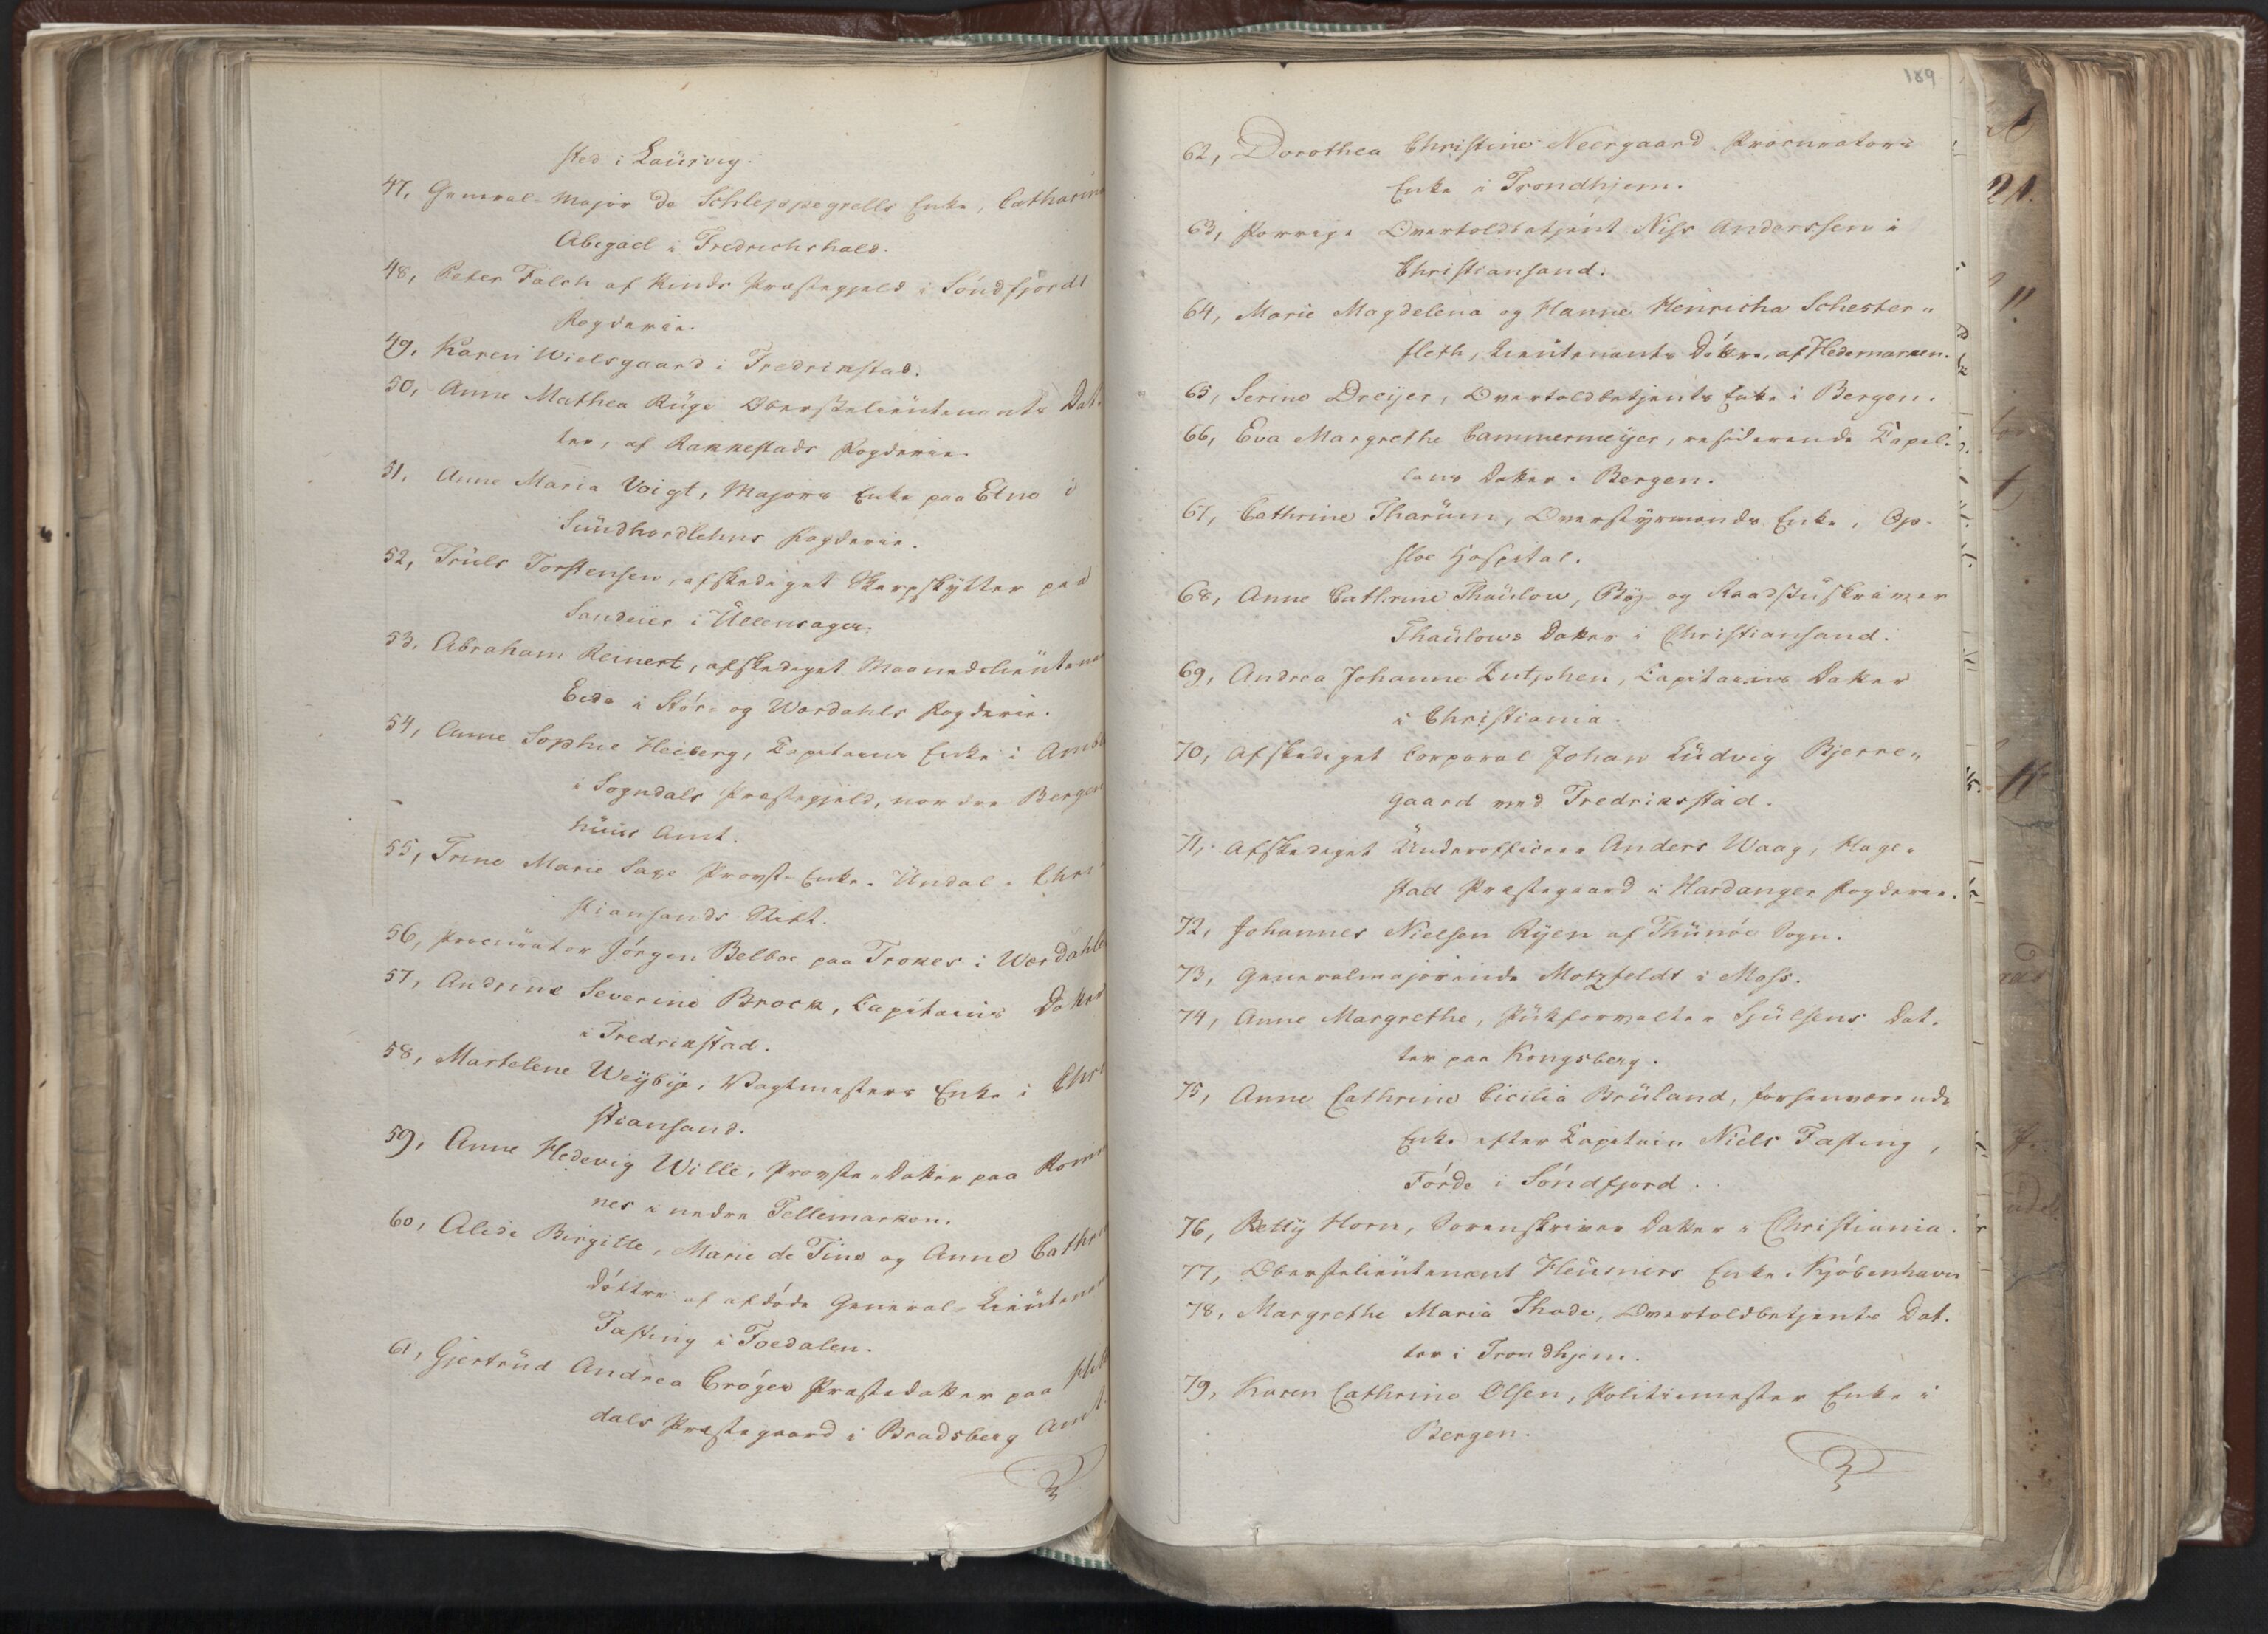 sted i Laürvig.
47, General-Major de Schleppegrells Enke, Catharine
Abegael i Fredrichshald.
48, Peter Falch af Kinds Præstegjeld i Söndfjords
Fogderie.
49, Karen Wielsgaard i Fredrikstad.
50, Anne Mathea Rüge Oberstelieütenants Dat-
ter, af Rakkestads Fogderie.
51, Anne Maria Voigt, Majors Enke paa Etne i
Sündhordlehns Fogderie.
52, Trüls Torstensen, afskediget Skarpskytter paa
Sandeier i Üllensager.
53, Abraham Reinert, afskediget Maanedslieütenant
Eide i Stör- og Værdahls Fogderie.
54, Anne Sophie Heiberg, Capitains Enke i Amble
i Sogndals Præstegjeld, nordre Bergen
hüüs Amt.
55, Trine Marie Sage Provst-Enke i Ündal i Chri
stiansands Stift.
56, Procürator Jörgen Belboe paa Trones i Værdahle
57, Andrine Severine Brock, Capitains Datter
i Fredrikstad.
58, Martelene Weybye, Vagtmesters Enke i Chri
stiansand.
59, Anne Hedevig Wille, Provste-Datter paa Rom
nes i nedre Tellemarken.
60, Alide Birgitte, Marie de Fine og Anne Cathri
döttre af afdöde General-Lieütenant
Fasting i Foedalen.
61, Gjertrüd Andrea Cröger Præstedatter paa
dals Præstegaard i Bradsberg Amt.
189
62, Dorothea Christine Neergaard Procurators
Enke i Trondhjem.
63, Forrige Overtoldbetjent Niss Anderssen i
Christiansand.
64, Marie Magdelena og Hanne Henricha Schester-
fleth, Lieütenants Döttre, af Hedemarken.
65, Serine Dreyer, Overtoldbetjents Enke i Bergen.
66, Eva Margrethe Cammermeyer, residerende Capel-
lans Datter i Bergen.
67, Cathrine Tharüm, Overstyrmands Enke, Op-
sloe Hospital.
68, Anne Cathrine Thaülow, By- og Raadstüskriver
Thaülows Datter i Christiansand.
69, Andrea Johanne Zutphen, Capitains Datter
i Christiania.
70, Afskediget Corporal Johan Lüdvig Bjerre-
gaard ved Fredriksstad.
71, Afskediget Ünderofficeer Anders Waag, Kage-
stad Præstegaard i Hardanger Fogderie.
72, Johannes Nielsen Ryen af Thünöe Sogn.
73, Generalmajorinde Motzfeldt i Moss.
74, Anne Margrethe, Pükforvalter Sjülsens Dat-
ter paa Kongsberg.
75, Anne Cathrine Cicilia Brüland, forhenværende
Enke efter Capitain Niels Fasting,
Förde i Söndfjord.
76, Betty Horn, Sorenskriver Datter i Christiania.
77, Oberstelieütenant Heüsners Enke i Kjöbenhavn
78, Margrethe Maria Thode, Overtoldbetjents Dat-
ter i Trondhjem.
79, Karen Cathrine Olsen, Politiemester Enke i
Bergen.